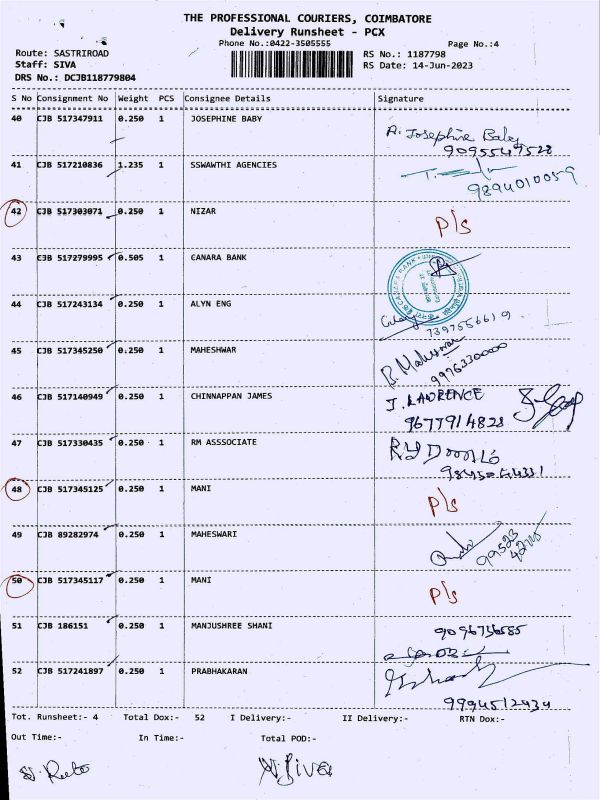 THE PROFESSIONAL COURIERS, COIMBATORE
Delivery Runsheet - PCX
Phone No.:0422-3505555
Page No.:4
Route: SASTRIROAD
RS No.: 1187798
Staff: SIVA
RS Date: 14-Jun-2023
DRS No.: DCJB118779804
S No Consignment No Weight PCS Consignee Details Signature
40 CJB 517347911 0.250 1 JOSEPHINE BABY
A. Josephine Baby
9095547528
41 CJB 517210836 1.235 1 SSWAWTHI AGENCIES
9894010059
42 CJB 517303071 0.250 1 NIZAR
P/s
43 CJB 517279995 0.505 1 CANARA BANK
44 CJB 517243134 0.250 1 ALYN ENG
7397556619
45 CJB 517345250 0.250 1 MAHESHWAR
B. Maheswar
9976330000
46 CJB 517140949 0.250 1 CHINNAPPAN JAMES
J. LAWRENCE
9677914828
47 CJB 517330435 0.250 1 RM ASSSOCIATE
48 CJB 517345125 0.250 1 MANI
P/s
49 CJB 89282974 0.250 1 MAHESWARI
50 CJB 517345117 0.250 1 MANI
P/s
51 CJB 186151 0.250 1 MANJUSHREE SHANI
9096736585
52 CJB 517241897 0.250 1 PRABHAKARAN
9994512434
Tot. Runsheet:- 4 Total Dox:- 52 I Delivery:- II Delivery:- RTN Dox:-
Out Time:- In Time:- Total POD:-